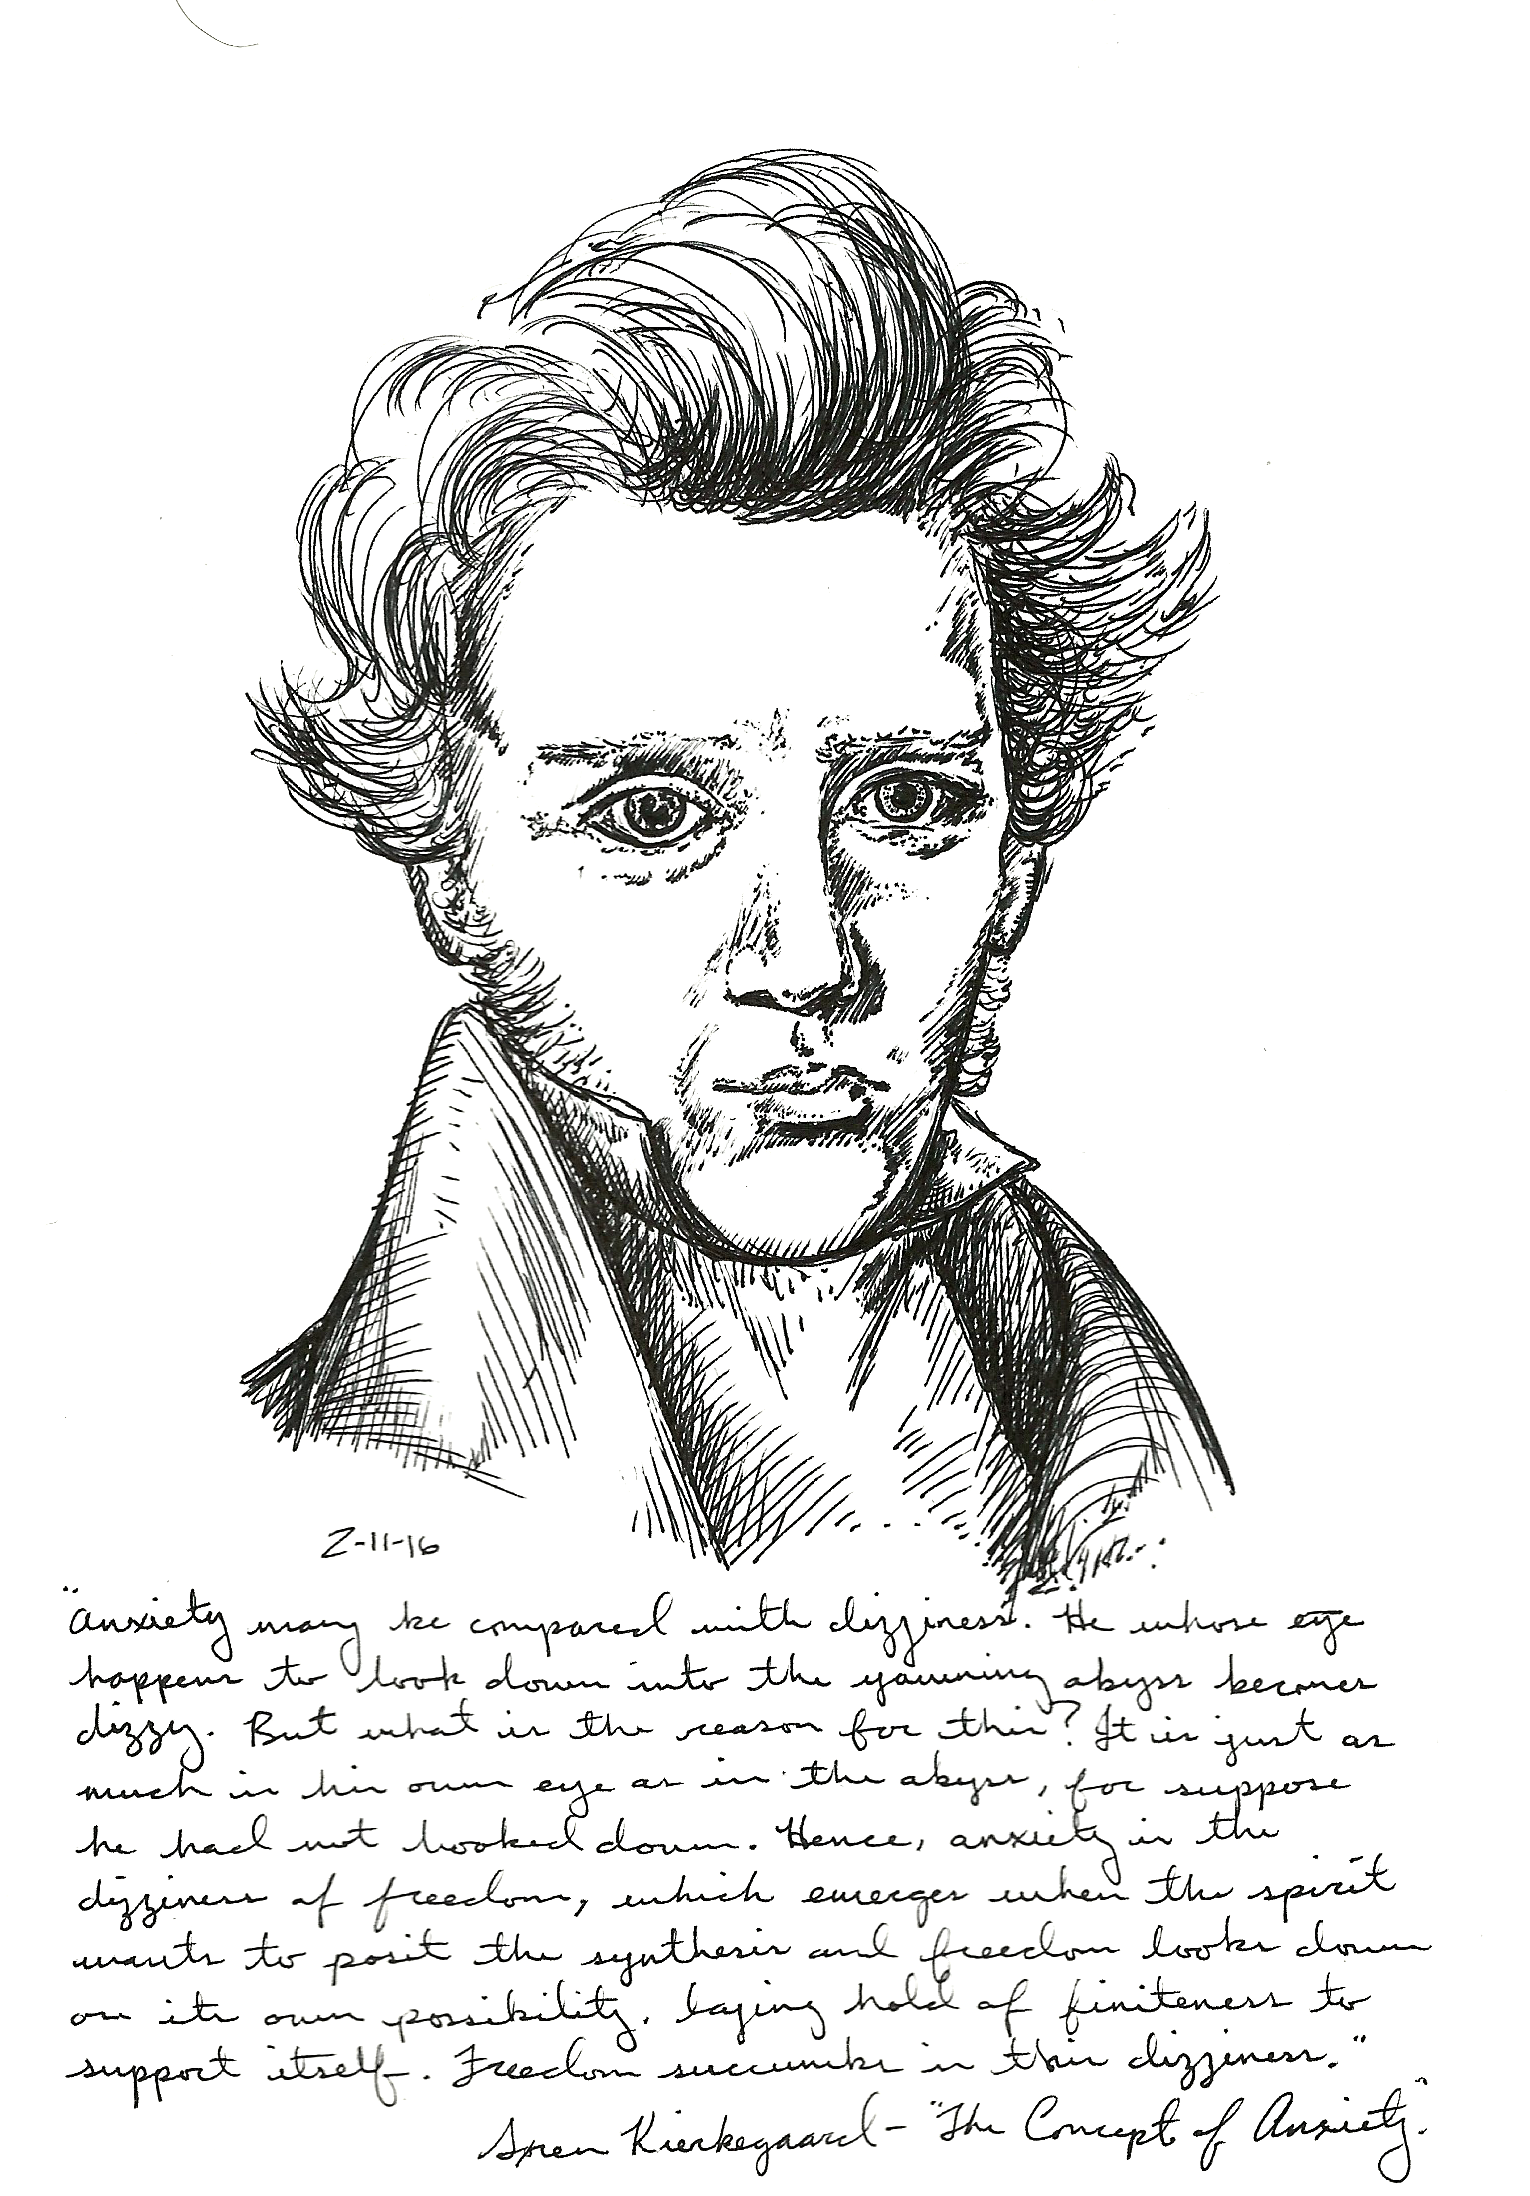 2-11-16
"Anxiety may be compared with dizziness. He whose eye
happens to look down into the yawning abyss becomes
dizzy. But what is the reason for this? It is just as
much in his own eye as in the abyss, for suppose
he had not looked down. Hence, anxiety is the
dizziness of freedom, which emerges when the spirit
wants to posit the synthesis and freedom looks down
on its own possibility, laying hold of finiteness to
support itself. Freedom succumbs in this dizziness."
Søren Kierkegaard - "The Concept of Anxiety."